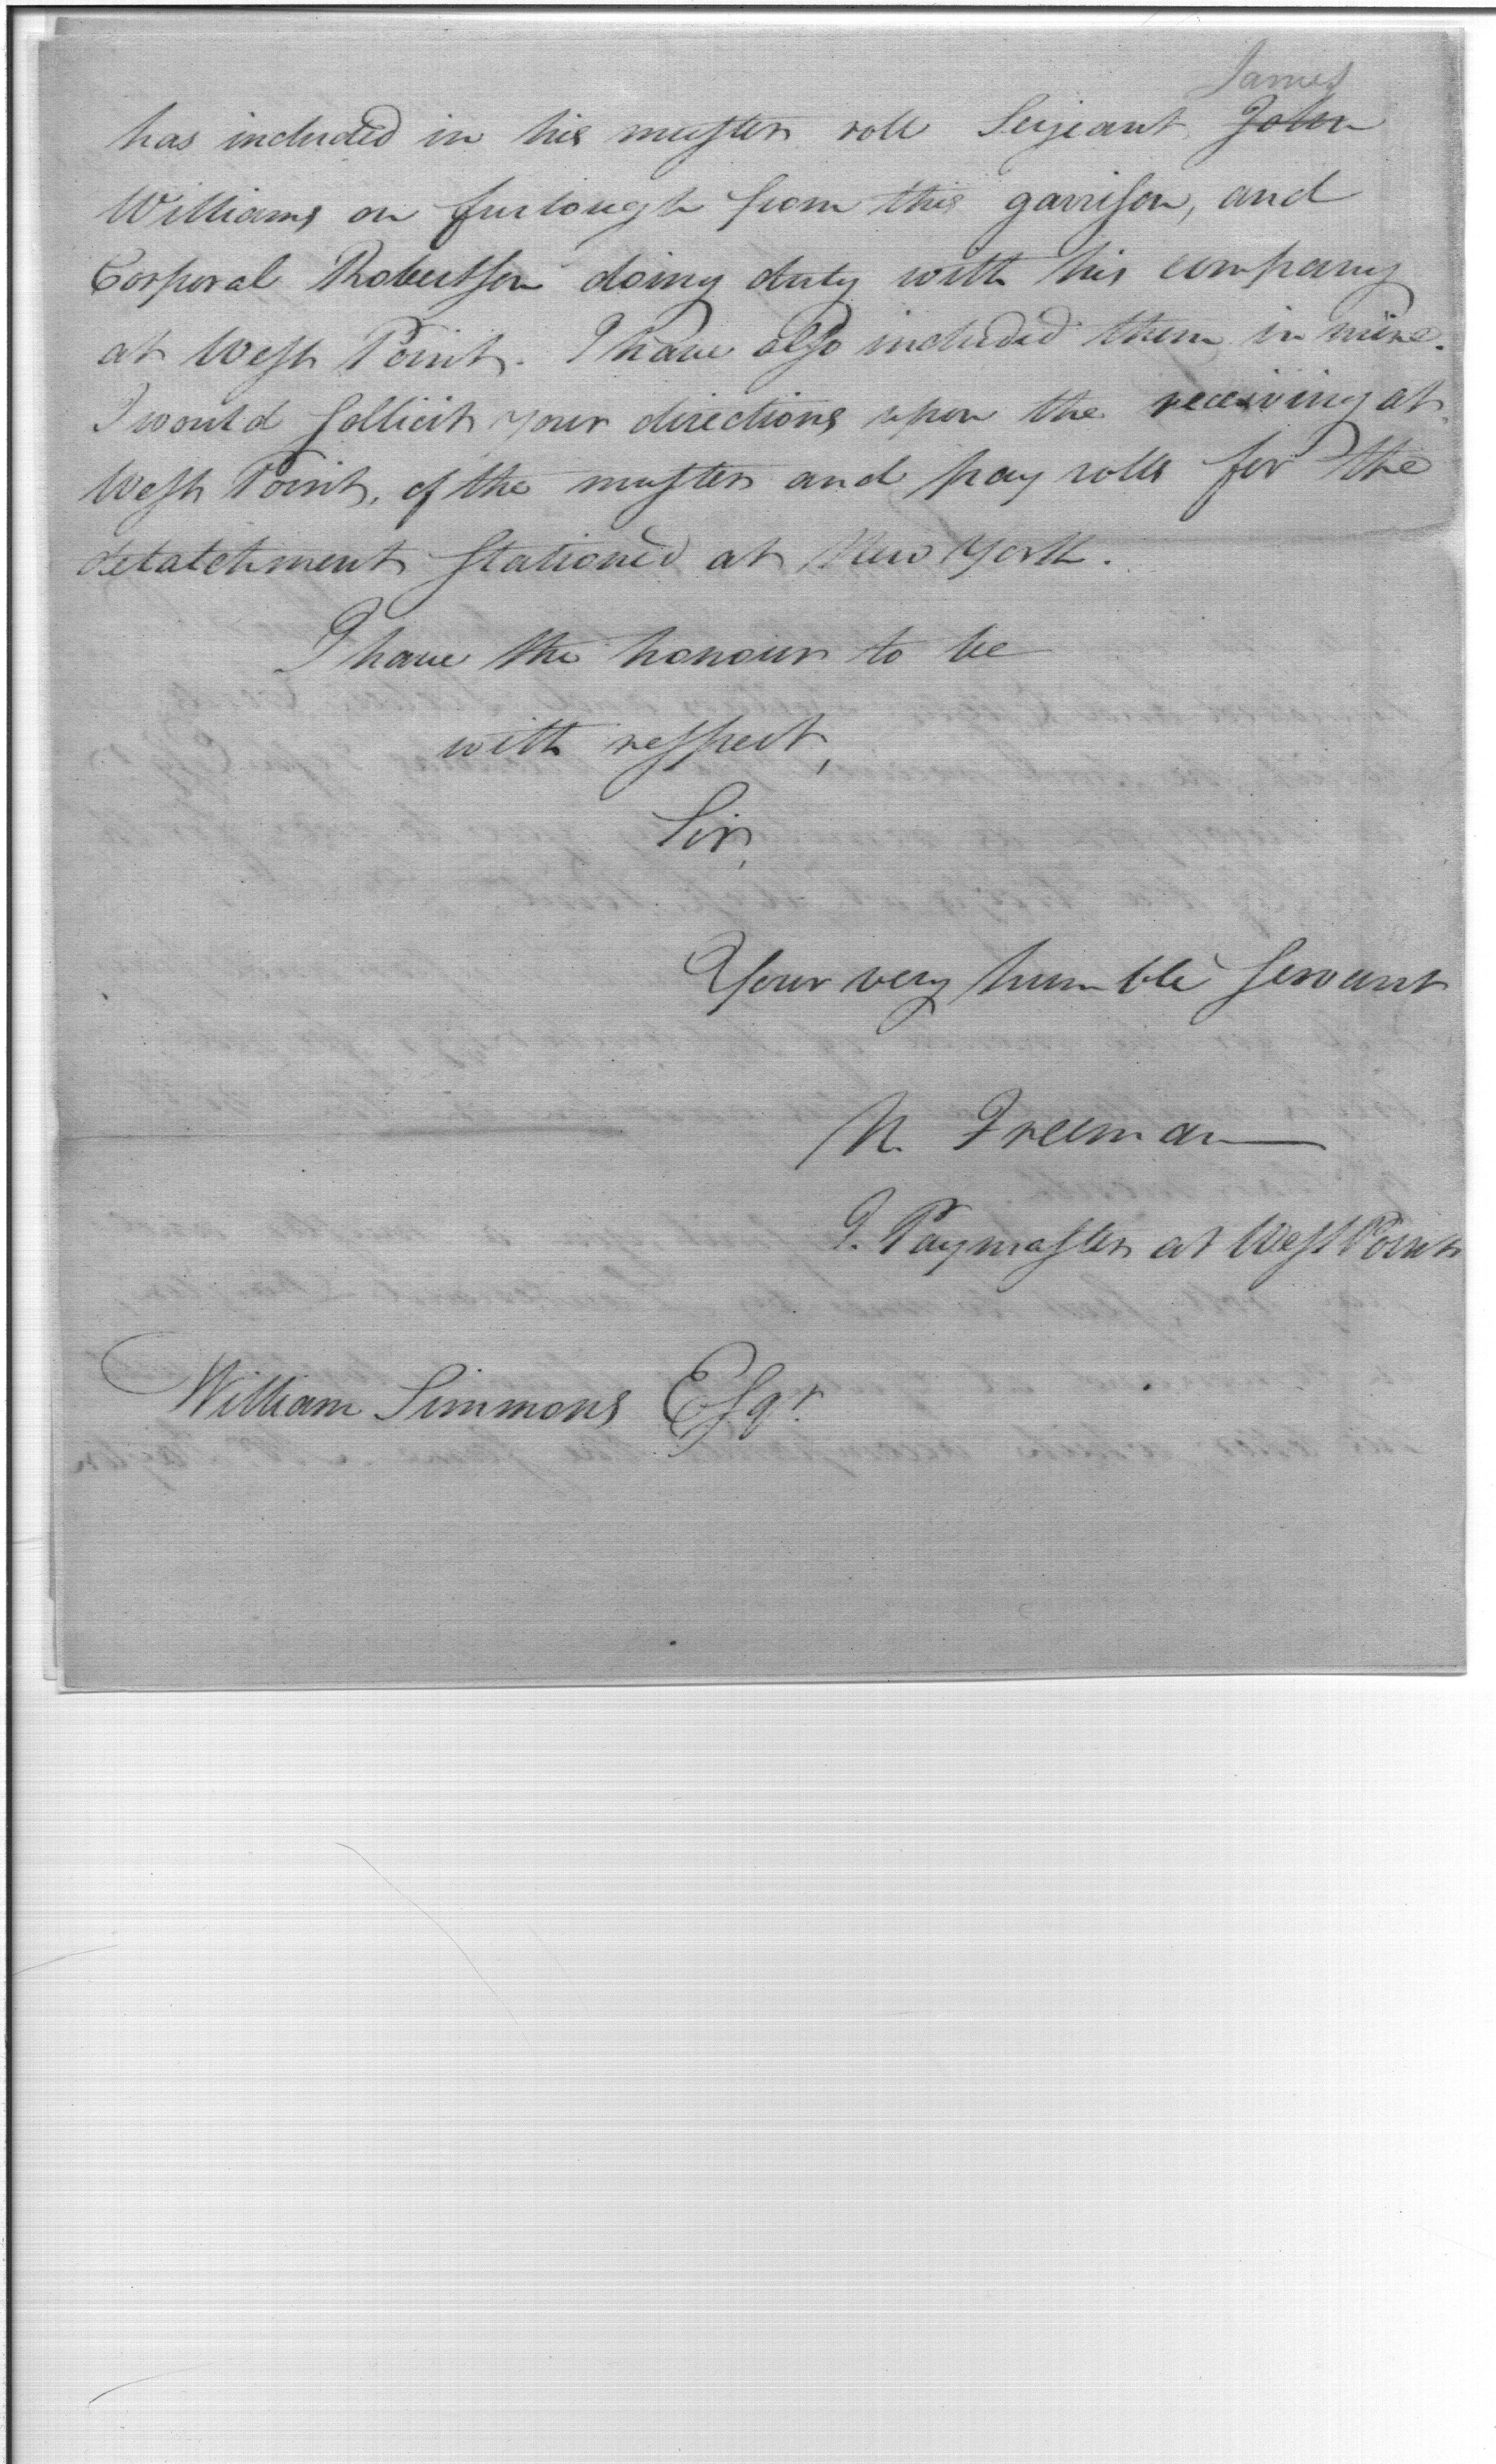 James
has included in his muster roll Serjeant John
Williams on furlough from this garrison, and
Corporal Robertson doing duty with his company
at West Point. I have also included them in mine.
I would sollicit your directions upon the receiving at
West Point, of the muster and pay rolls for the
detatchment stationed at New York.
I have the honour to be
with respect,
Sir,
Your very humble servant
N. Freeman
P. Paymaster at West Point
William Simmons Esqr.